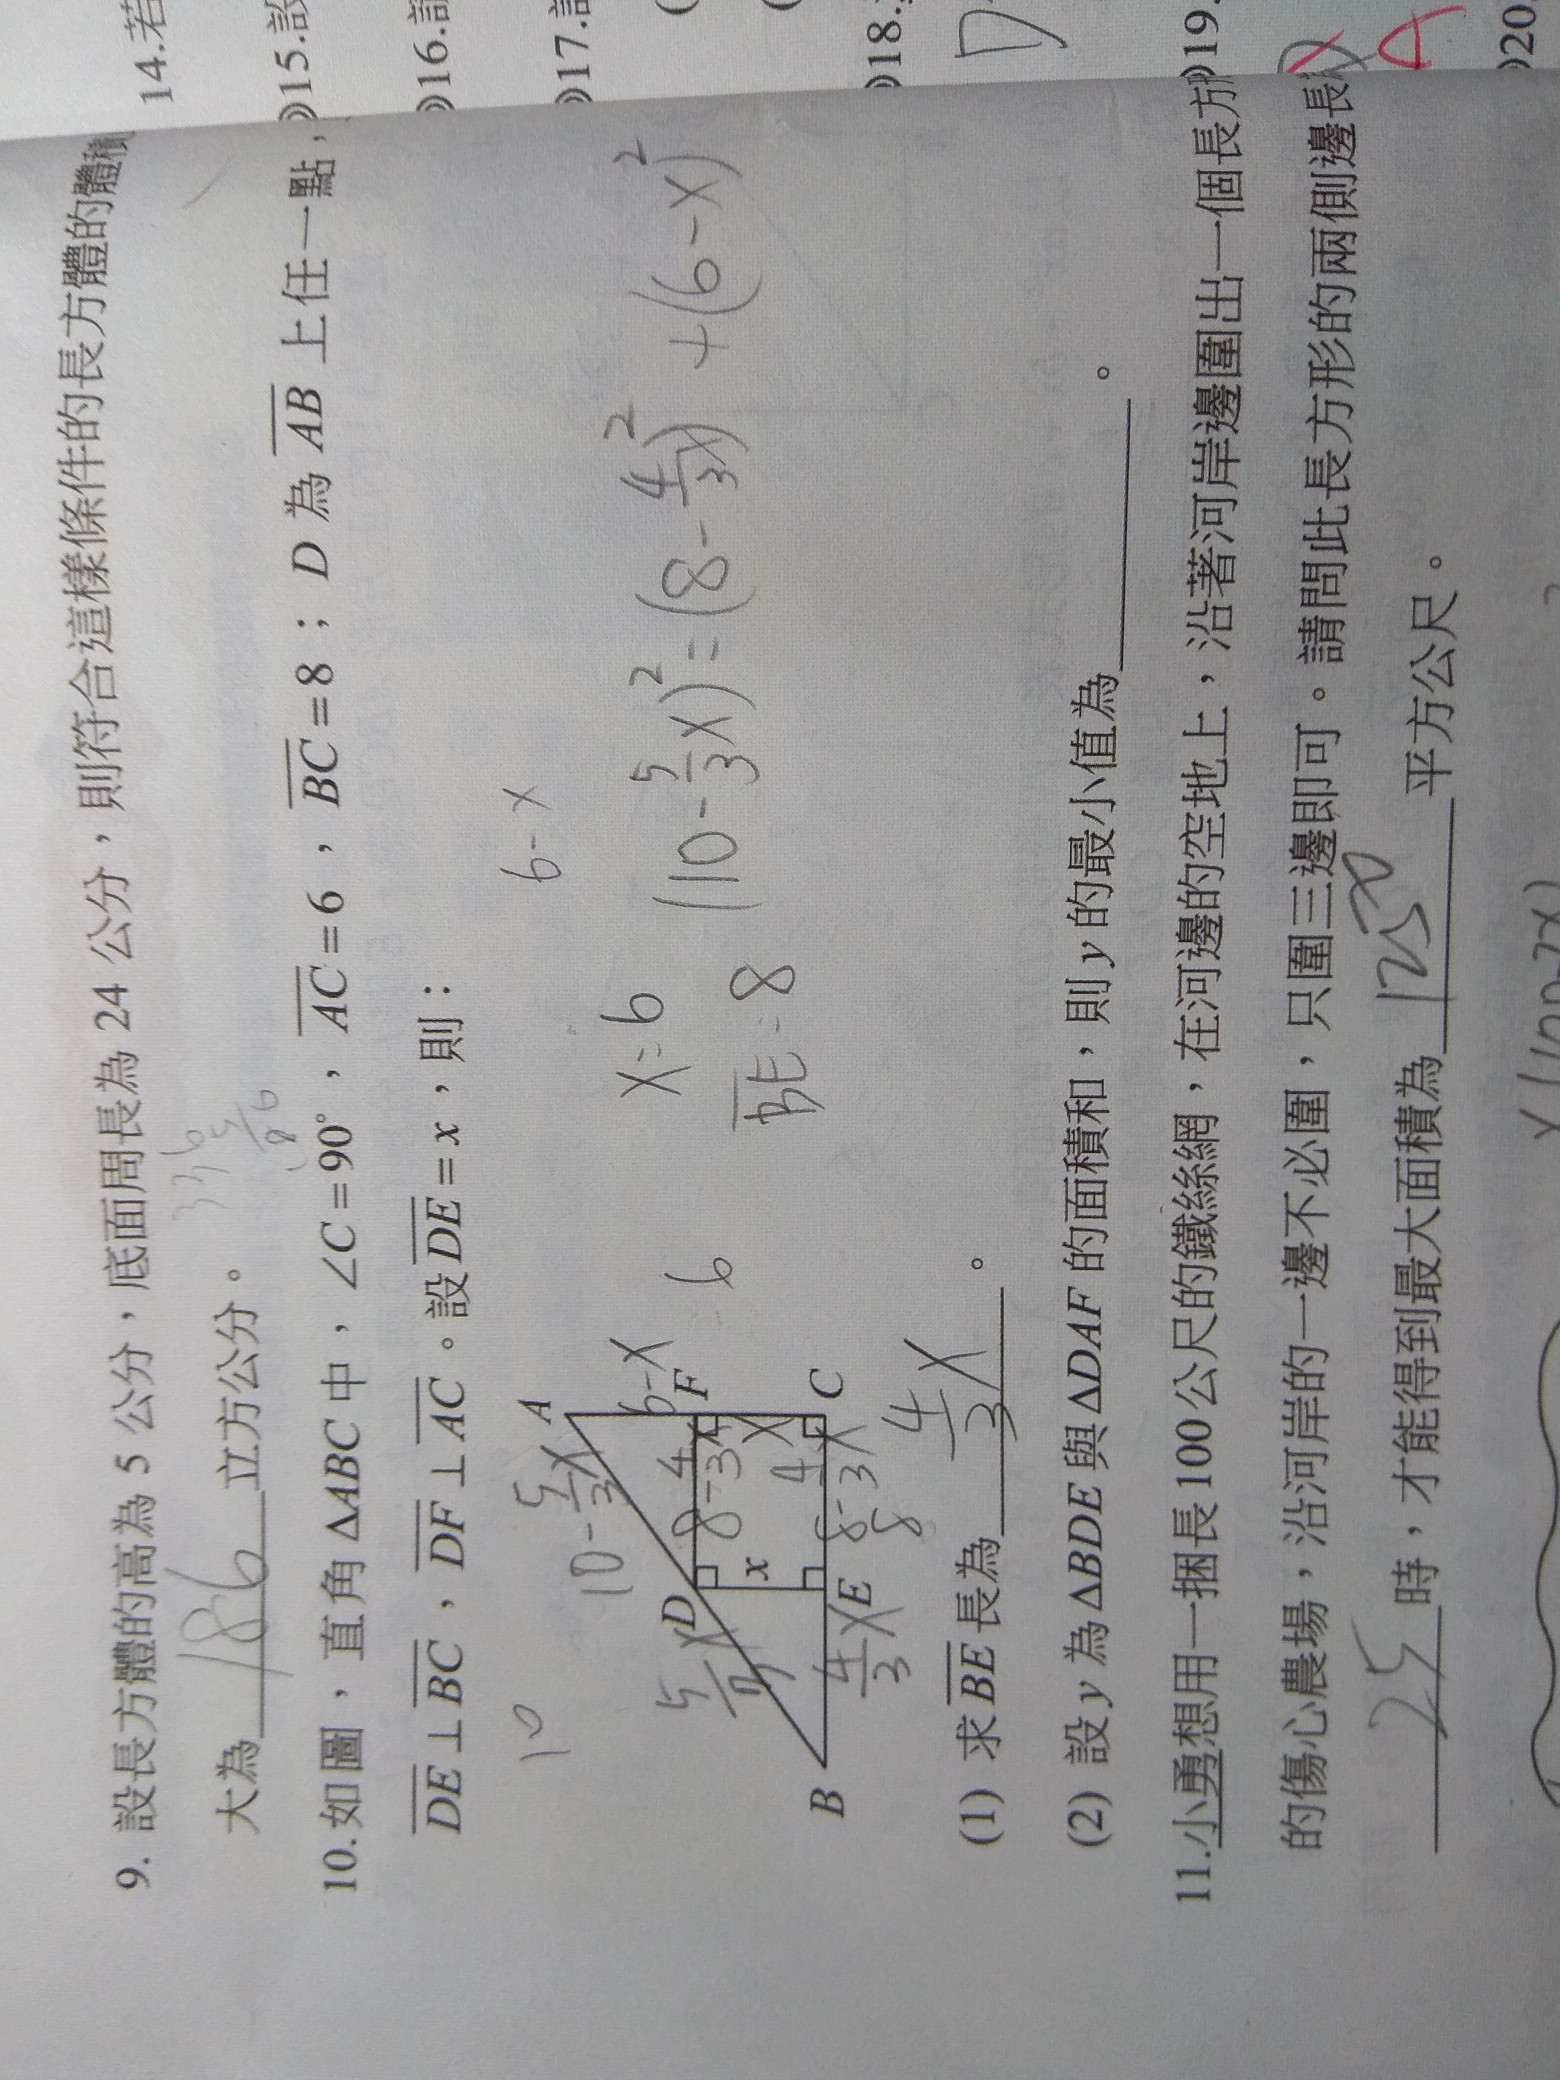 9. 設長方體的高為 5 公分，底面周長為 24 公分，則符合這樣條件的長方體的體積
大為 186 立方公分。
10. 如圖，直角 ΔABC 中，∠C=90°，AC=6，BC=8；D 為 AB 上任一點，
DE⊥BC，DF⊥AC。設 DE=x，則：
10
10-5/3x
A
5/3x
D
6-x
F
6
8-4/3x
x
x
B
4/3x
E
8-4/3x
8
C
6-x
x=6
BE=8
(10-5/3x)²=(8-4/3x)²+(6-x)²
(1) 求 BE 長為 4/3x 。
(2) 設 y 為 ΔBDE 與 ΔDAF 的面積和，則 y 的最小值為 。
11. 小勇想用一捆長 100 公尺的鐵絲網，在河邊的空地上，沿著河岸邊圍出一個長方
的傷心農場，沿河岸的一邊不必圍，只圍三邊即可。請問此長方形的兩側邊長
25 時，才能得到最大面積為 1250 平方公尺。
14. 若
15. 設
16.
17.
18.
D
19.
A
20.